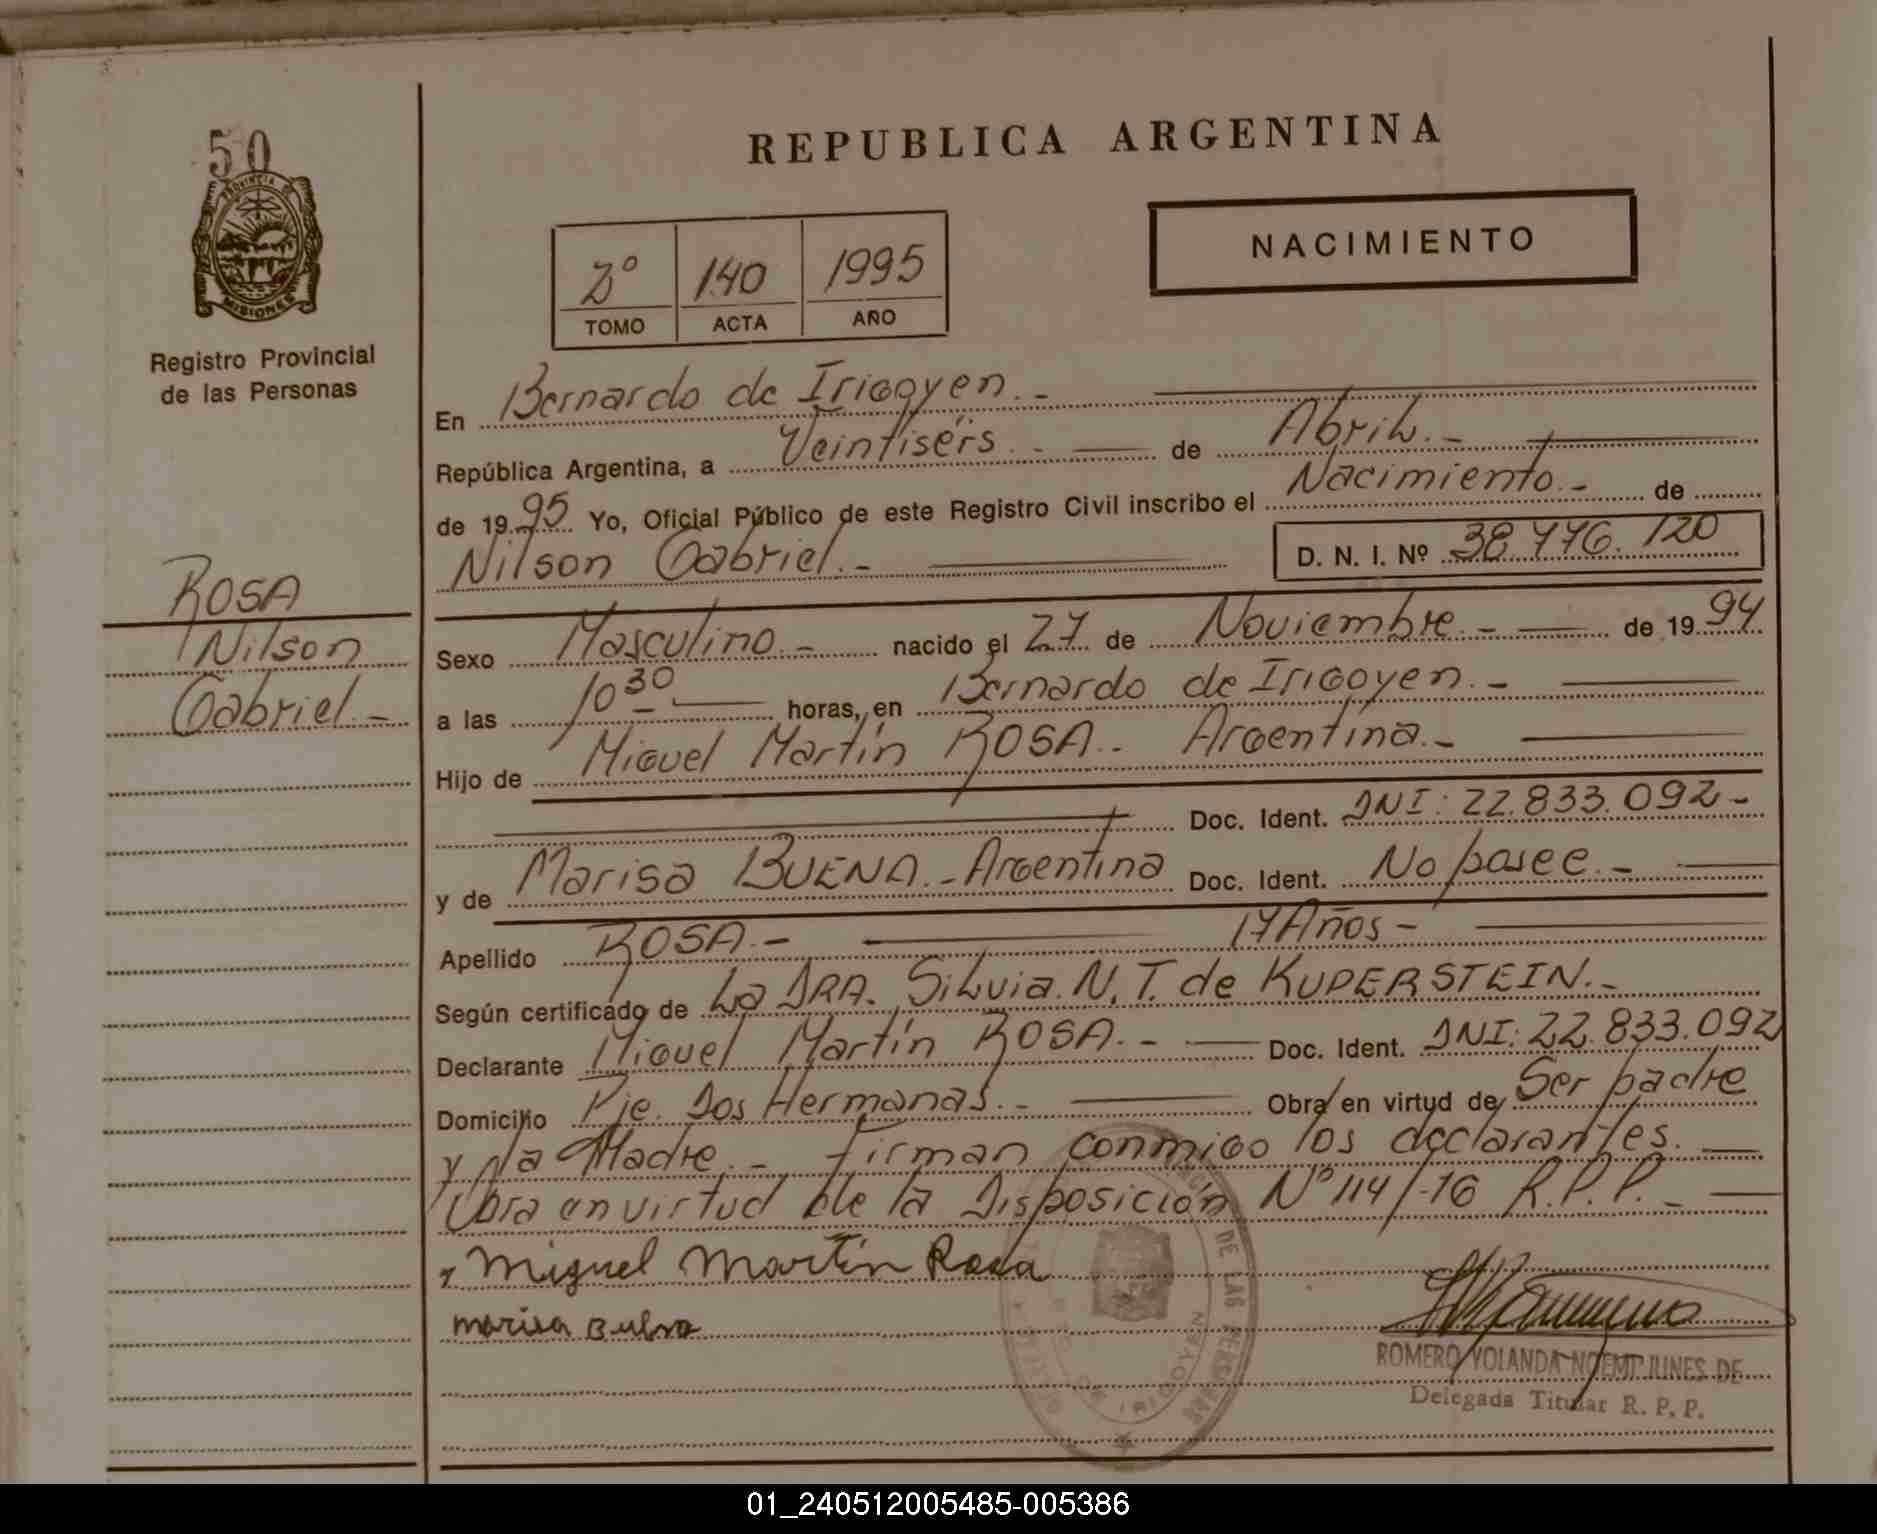 50
PROVINCIA DE
MISIONES
Registro Provincial
de las Personas
ROSA
Nilson
Gabriel.-
REPUBLICA ARGENTINA
2º 140 1995
TOMO ACTA AÑO
NACIMIENTO
En Bernardo de Irigoyen.-
República Argentina, a Veintiséis.- de Abril.-
de 1995 Yo, Oficial Público de este Registro Civil inscribo el Nacimiento.- de
Nilson Gabriel.- D. N. I. Nº 38.776.120
Sexo Masculino.- nacido el 27 de Noviembre.- de 1994
a las 10 30 horas, en Bernardo de Irigoyen.-
Hijo de Miguel Martín ROSA.- Argentina.-
Doc. Ident. DNI: 22.833.092-
y de Marisa BUENA.-Argentina Doc. Ident. No posee.-
Apellido ROSA.- 17 Años-
Según certificado de La DRA. Silvia.N.T. de KUPERSTEIN.-
Declarante Miguel Martín ROSA.- Doc. Ident. DNI: 22.833.092
Domicilio Pje. Dos Hermanas.- Obra en virtud de Ser padre
y la Madre.- Firman conmigo los declarantes.
Obra en virtud de la Disposición Nº 114/-16 R.P.P.-
Miguel Martín Rosa
marisa
DE LAS PERSONAS
DE IRIGOYEN
ROMERO YOLANDA NOEMI JUNES DE
Delegada Titular R. P. P.
01_240512005485-005386